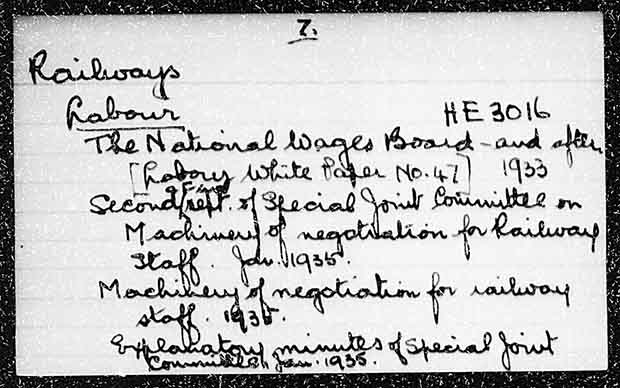 7.
Railways
Labour HE 3016
The National Wages Board - and after.
[Labour White Paper No. 47] 1933
Second & Final rept. of Special Joint Committee on
Machinery of negotiation for Railway
Staff. Jan. 1935.
Machinery of negotiation for railway
staff. 1935.
Explanatory minutes of Special Joint
Committee, Jan. 1935.